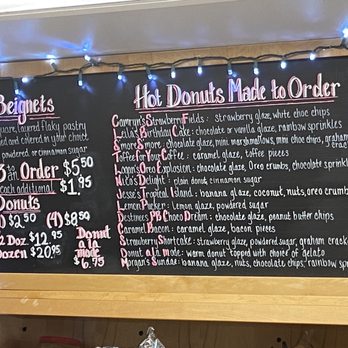 Beignets
Square, layered flaky pastry
and covered in your choice
powdered or cinnamon sugar
3 Order $5.50
each additional $1.95
Donuts
$2.50 (4) $8.50
2 Doz $12.95
Dozen $20.95
Donut
a la
mode
$6.75
Hot Donuts Made to Order
Camryn's Strawberry Fields : strawberry glaze, white choc chips
Leila's Birthday Cake : chocolate or vanilla glaze, rainbow sprinkles
Smore Smore : chocolate glaze, mini marshmallows, mini choc chips, graham
Toffee For Your Coffee : caramel glaze, toffee pieces
Logan's Oreo Explosion : chocolate glaze, Oreo crumbs, chocolate sprinkles
Nic's Delight : plain donut, cinnamon sugar
Jesse's Tropical Island : banana glaze, coconut, nuts, oreo crumbs
Lemon Pucker : Lemon glaze, powdered sugar
Destinees PB Choco Dream : chocolate glaze, peanut butter chips
Caramel Bacon : caramel glaze, bacon pieces
Strawberry Shortcake : strawberry glaze, powdered sugar, graham crack
Donut a la mode : warm donut topped with choice of gelato
Morgan's Sundae : banana glaze, nuts, chocolate chips, rainbow spri